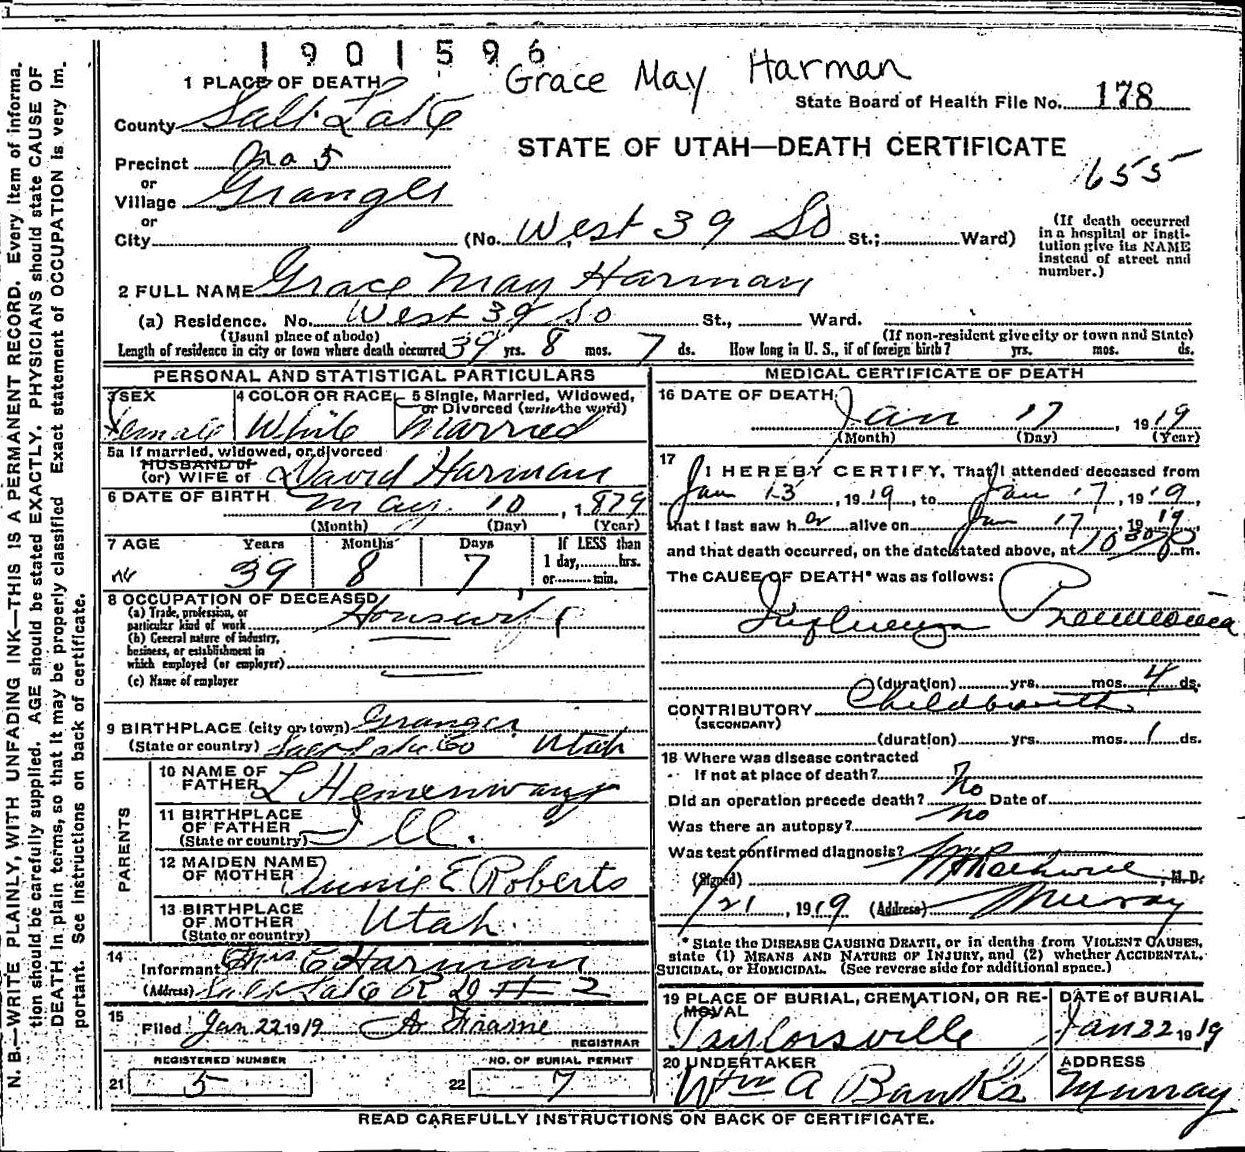 1901596
Grace May Harman
1 PLACE OF DEATH
State Board of Health File No. 178
County Salt Lake
STATE OF UTAH—DEATH CERTIFICATE
655
Precinct No 5
or
Village Granger
or
City (No. West 39 So St.; Ward)
(If death occurred in a hospital or institution give its NAME instead of street and number.)
2 FULL NAME Grace May Harman
(a) Residence. No. West 39 So St., Ward.
(Usual place of abode) (If non-resident give city or town and State)
Length of residence in city or town where death occurred 39 yrs. 8 mos. 7 ds. How long in U. S., if of foreign birth? yrs. mos. ds.
PERSONAL AND STATISTICAL PARTICULARS
3 SEX Female
4 COLOR OR RACE White
5 Single, Married, Widowed, or Divorced (write the word) Married
5a If married, widowed, or divorced
HUSBAND of
(or) WIFE of David Harman
6 DATE OF BIRTH May 10, 1879
(Month) (Day) (Year)
7 AGE Years Months Days If LESS than
39 8 7 1 day, hrs.
or min.
8 OCCUPATION OF DECEASED
(a) Trade, profession, or particular kind of work Housewife
(b) General nature of industry, business, or establishment in which employed (or employer)
(c) Name of employer
9 BIRTHPLACE (city or town) Granger
(State or country) Salt Lake Co Utah
PARENTS
10 NAME OF FATHER L Hemenway
11 BIRTHPLACE OF FATHER (State or country) Ill.
12 MAIDEN NAME OF MOTHER Annie E Roberts
13 BIRTHPLACE OF MOTHER (State or country) Utah
14 Informant Mrs C Harman
(Address) Salt Lake R D # 2
15 Filed Jan 22 1919 REGISTRAR
REGISTERED NUMBER NO. OF BURIAL PERMIT
21 5 22 7
MEDICAL CERTIFICATE OF DEATH
16 DATE OF DEATH Jan 17, 1919
(Month) (Day) (Year)
17 I HEREBY CERTIFY, That I attended deceased from
Jan 13, 1919, to Jan 17, 1919,
that I last saw her alive on Jan 17, 1919
and that death occurred, on the date stated above, at 1030 P m.
The CAUSE OF DEATH* was as follows:
Influenza Pneumonia
(duration) yrs. mos. 4 ds.
CONTRIBUTORY Childbirth
(SECONDARY)
(duration) yrs. mos. 1 ds.
18 Where was disease contracted
If not at place of death?
Did an operation precede death? No Date of
Was there an autopsy? no
Was test confirmed diagnosis?
(Signed) , M. D.
1/21, 1919 (Address) Murray
*State the DISEASE CAUSING DEATH, or in deaths from VIOLENT CAUSES, state (1) MEANS AND NATURE OF INJURY, and (2) whether ACCIDENTAL, SUICIDAL, or HOMICIDAL. (See reverse side for additional space.)
19 PLACE OF BURIAL, CREMATION, OR REMOVAL DATE of BURIAL
Taylorsville Jan 22 1919
20 UNDERTAKER ADDRESS
Wm A Banks Murray
READ CAREFULLY INSTRUCTIONS ON BACK OF CERTIFICATE.
N. B.—WRITE PLAINLY, WITH UNFADING INK—THIS IS A PERMANENT RECORD. Every item of informa.
tion should be carefully supplied. AGE should be stated EXACTLY. PHYSICIANS should state CAUSE OF
DEATH in plain terms, so that it may be properly classified Exact statement of OCCUPATION is very im.
portant. See instructions on back of certificate.